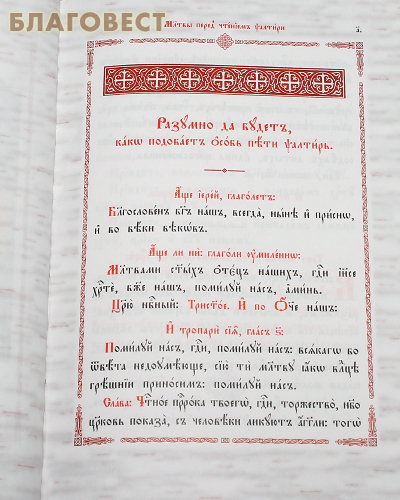 БЛАГОВЕСТ
Мл҃твы пере́д чте́нїемъ ѱалти́ри
Разꙋ́мно да бꙋ́детъ,
ка́кѡ подоба́етъ ѻ҆со́бь пѣ́ти ѱалти́рь.
А҆́ще і҆ере́й, глаго́летъ:
Благослове́нъ бг҃ъ на́шъ, всегда̀, ны́нѣ и҆ при́снѡ,
и҆ во вѣ́ки вѣкѡ́въ.
А҆́ще ли нѝ: глаго́ли ᲂу҆миле́ннѡ:
Мл҃твами ст҃ы́хъ ѻ҆тє́цъ на́шихъ, гдⷭ҇и і҆и҃се
хрⷭ҇тѐ, бж҃е на́шъ, поми́лꙋй на́съ, а҆ми́нь.
Цр҃ю̀ нбⷭ҇ный: Трист҃о́е. И҆ по Ѻ҆́ч҃е на́шъ:
И҆ тропарѝ сїѧ̑, гла́съ ѕ҃:
Поми́лꙋй на́съ, гдⷭ҇и, поми́лꙋй на́съ: всѧ́кагѡ бо
ѿвѣ́та недоꙋмѣ́юще, сїю́ ти мл҃твꙋ ꙗ҆́кѡ влⷣцѣ
грѣ́шнїи прино́симъ: поми́лꙋй на́съ.
Сла́ва: Чⷭ҇тно́е прⷪ҇ро́ка твоегѡ̀, гдⷭ҇и, торжество̀, нб҃о
цр҃ковь показа̀, съ человѣ̑ки ликꙋ́ютъ а҆́гг҃ли: тогѡ̀